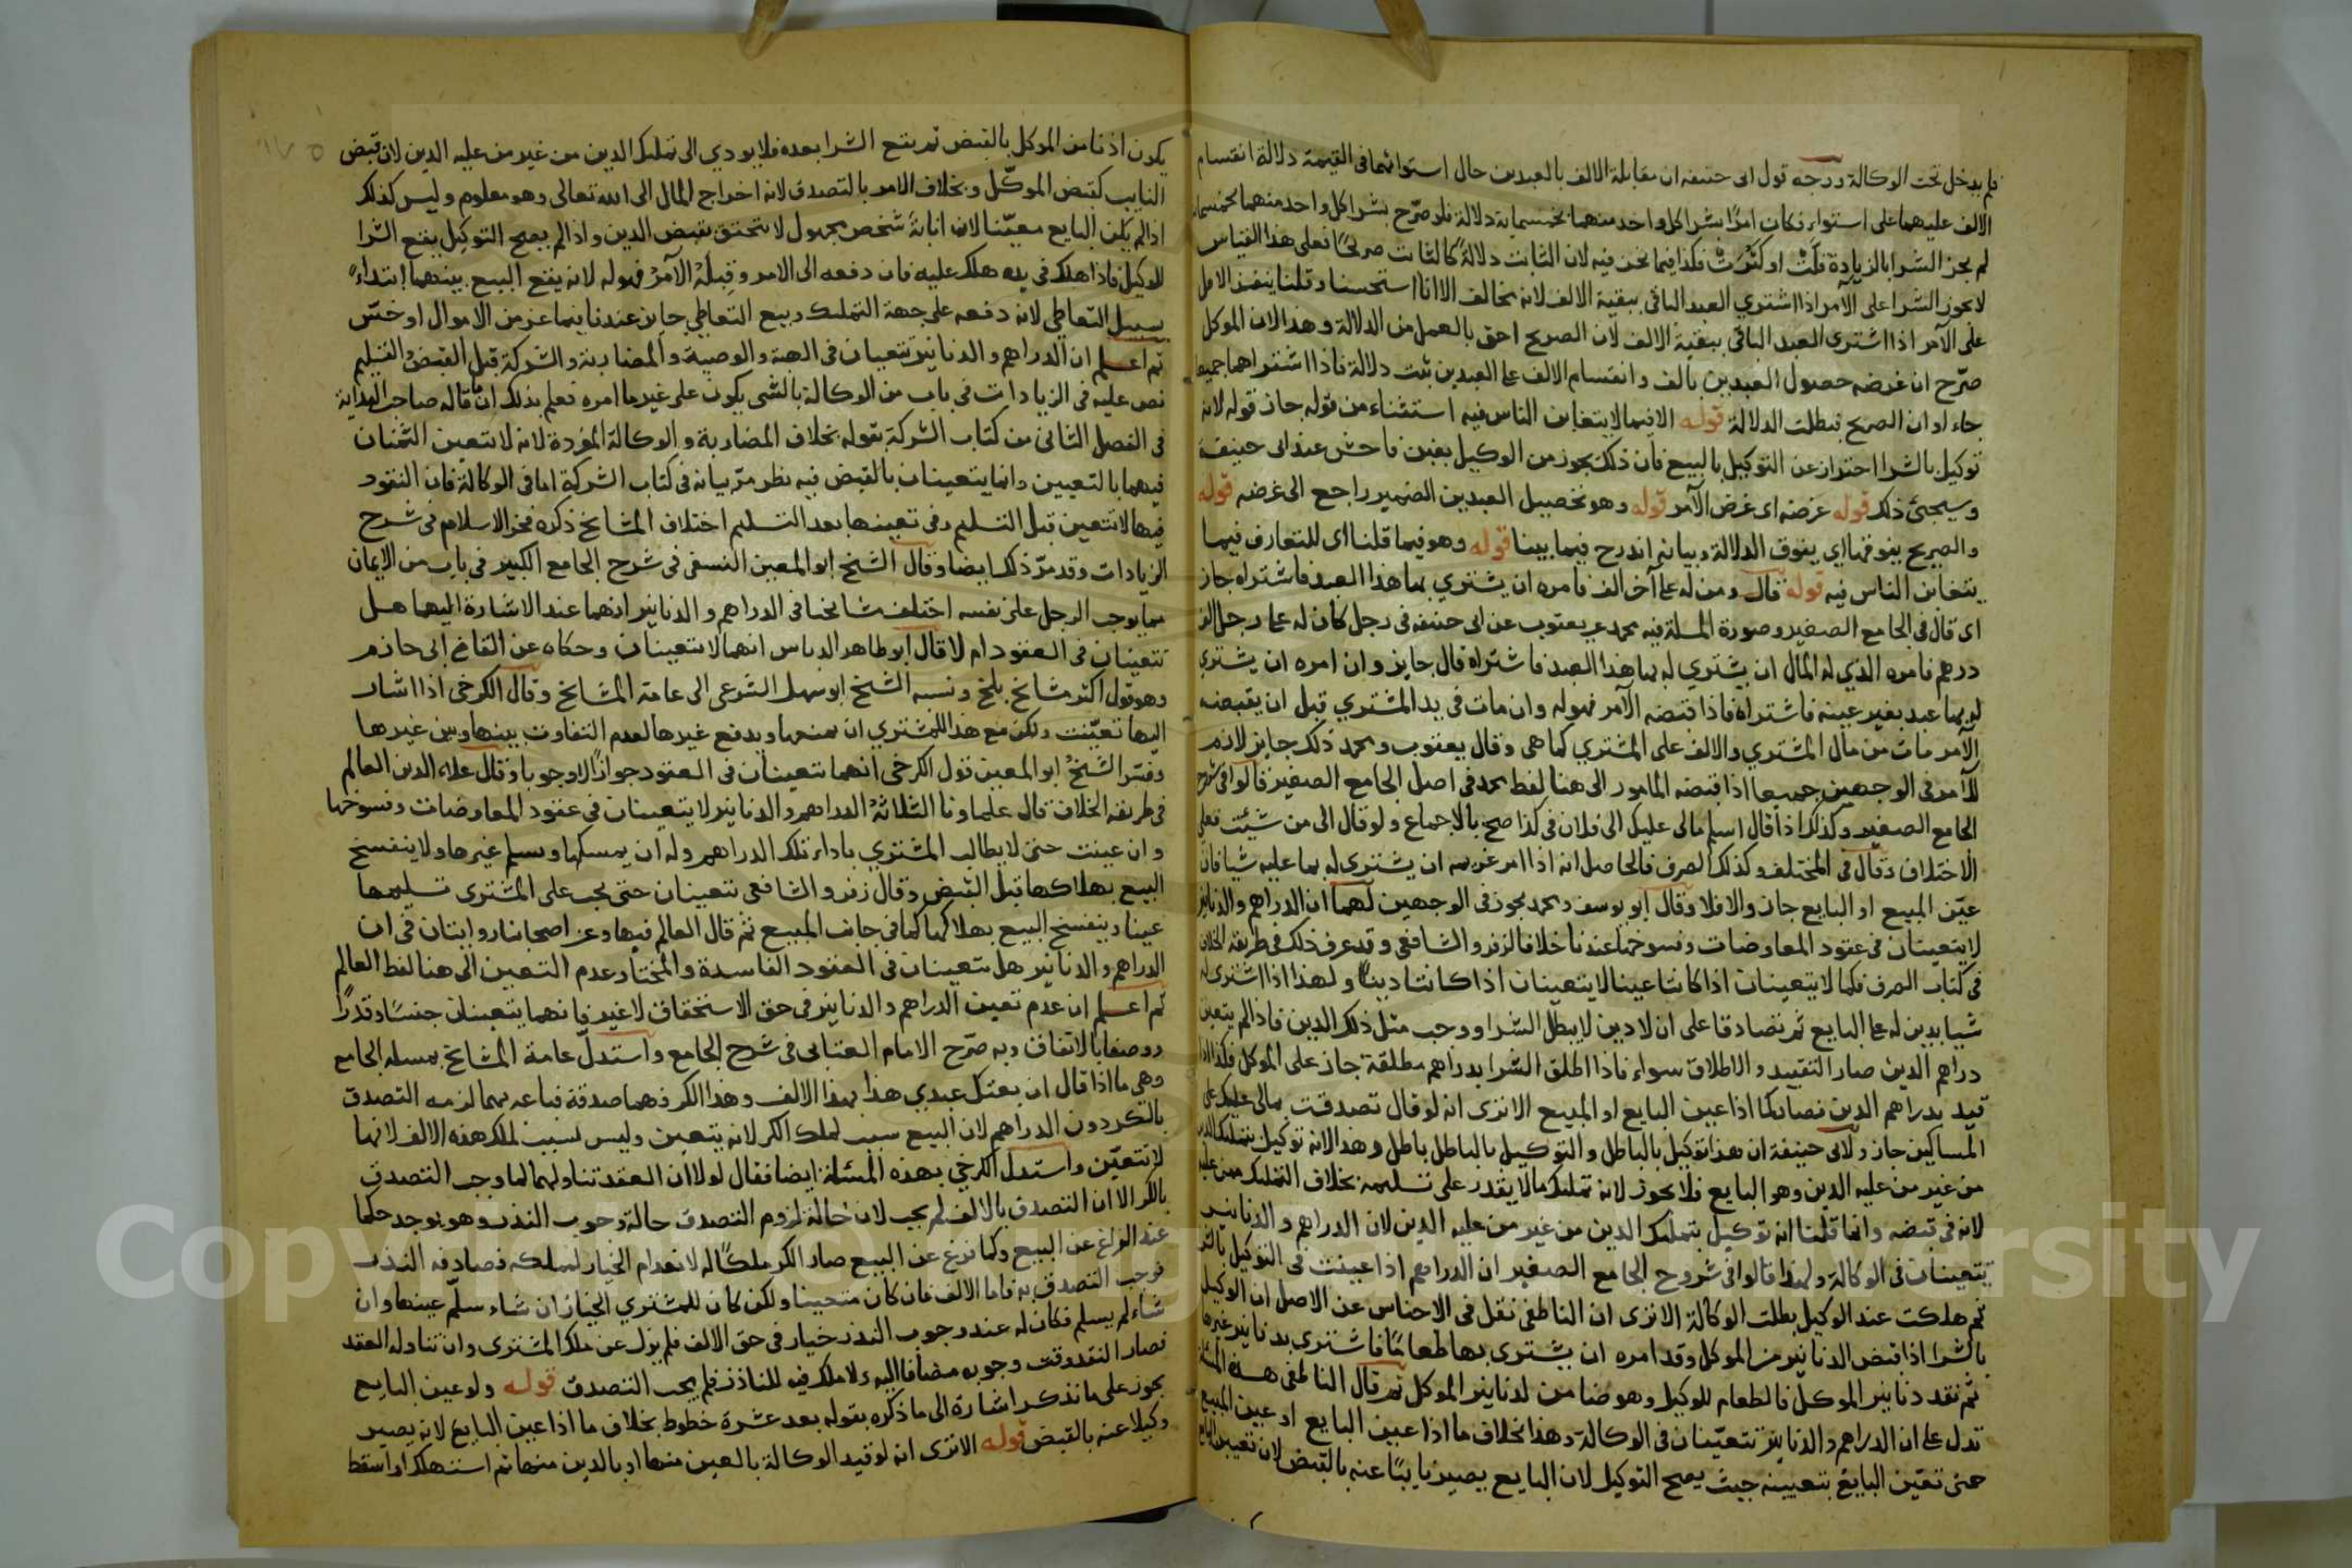 فلم يدخل تحت الوكالة ووجه قول ابى حنيفه ان مقابلة الالف بالعبدين حال استوائهما فى القيمة دلالة انقسام
الالف عليهما على استواء فكان امرًا بشرا كل واحد منهما بخمسماية دلالة فلو صرّح بشرا كل واحد منهما بخمسماية
لم يجز الشرا بالزيادة قلّت او كثرت فكذا فيما نحن فيه لان الثابت دلالةً كالثابت صريحًا فعلى هذا القياس
لا يجوز الشرا على الآمر اذا اشتري العبد الباقى ببقية الالف لانه يخالف الا انا استحسنا وقلنا ينفذ الامر
على الآمر اذا اشترى العبد الباقى ببقية الالف لان الصريح احق بالعمل من الدلالة وهذا لان الموكل
صرّح ان غرضه حصول العبدين بالف وانقسام الالف على العبدين يثبت دلالة فاذا اشتراهما جميعا
جاء اوان الصريح فبطلت الدلالة قوله الا فيما لا يتغابن الناس فيه استثناء من قوله جاز قوله لانه
توكيل بالشرا احتراز عن التوكيل بالبيع فان ذلك يجوز من الوكيل بغبن فاحش عند ابى حنيفة
وسيجئ ذلك قوله غرضه اى غرض الآمر قوله وهو تحصيل العبدين الضمير راجع الى غرضه قوله
والصريح يفوقها اي يفوق الدلالة وبيانه اندرج فيما بينا قوله وهو فيما قلنا اى للمتعارف فيما
يتغابن الناس فيه قوله قال ومن له على آخر الف فامره ان يشتري بها هذا العبد فاشتراه جاز
اى قال فى الجامع الصغير وصورة المسلة فيه محمد عن يعقوب عن ابى حنيفه فى رجل كان له على رجل الف
درهم فامره الذي له المال ان يشتري له بها هذا العبد فاشتراه قال جايز وان امره ان يشترى
له بها عبد بغير عينه فاشتراه فاذا قبضه الآمر فهو له وان مات فى يد المشتري قبل ان يقبضه
الآمر مات من مال المشتري والالف على المشتري كما هى وقال يعقوب ومحمد ذلك جايز لازم
للآمر فى الوجهين جميعا اذا قبضه المامور الى هنا لفظ محمد فى اصل الجامع الصغير قالوا فى شرح
الجامع الصغير وكذلك اذا قال اسلم مالى عليك الى فلان فى كذا صح بالاجماع ولو قال الى من شيئت فعلى
الاختلاف وقال فى المختلف وكذلك الصرف فالحاصل انه اذا امر غريمه ان يشترى له بما عليه شيا فان
عيّن المبيع او البايع جاز والا فلا وقال ابو يوسف ومحمد يجوز فى الوجهين لهما ان الدراهم والدنانير
لا يتعينان فى عقود المعاوضات وفسوخها عندنا خلافا لزفر والشافعى وقد عرف ذلك فى طريقة الخلاف
فى كتاب الصرف فكما لا يتعينان اذا كانتا عينا لا يتعينان اذا كانتا دينًا ولهذا اذا اشترى
شيا بدين له على البايع ثم تصادقا على ان لا دين لا يبطل الشرا ووجب مثل ذلك الدين فاذا لم يتعين
دراهم الدين صار التقييد والاطلاق سواء فاذا اطلق الشرا بدراهم مطلقة جاز على الموكل فكذا اذا
قيد بدراهم الدين فصار كما اذا عين البايع او المبيع الا ترى انه لو قال تصدقت بمالى عليك على
المساكين جاز ولابى حنيفة ان هذا توكيل بالباطل والتوكيل بالباطل باطل وهذا لانه توكيل بتمليك الدين
من غير من عليه الدين وهو البايع فلا يجوز لانه تمليك مالا يقدر على تسليمه بخلاف التمليك ممن عليه
لانه فى قبضه وانما قلنا انه توكيل بتمليك الدين من غير من عليه الدين لان الدراهم والدنانير
يتعينان فى الوكالة ولهذا قالوا فى شروح الجامع الصغير ان الدراهم اذا عينت فى التوكيل بالشرا
ثم هلكت عند الوكيل بطلت الوكالة الا ترى ان الناطفى نقل فى الاجناس عن الاصل ان الوكيل
بالشرا اذا قبض الدنانير من الموكل وقد امره ان يشترى بها طعامًا فاشترى بدنانير غيرها
ثم نقد دنانير الموكل فالطعام للوكيل وهو ضامن لدنانير الموكل ثم قال الناطفى هذه المسئلة
تدل على ان الدراهم والدنانير تتعيّنان فى الوكالة وهذا بخلاف ما اذا عين البايع او عين المبيع
حتى تعيّن البايع بتعيينه حيث يصح التوكيل لان البايع يصير نايبًا عنه بالقبض لان تعيين البايع
يكون اذنا من الموكل بالقبض ثم يقع الشرا بعده فلا يودي الى تمليك الدين من غير من عليه الدين لان قبض
النايب كقبض الموكّل وبخلاف الامر بالتصدق لانه اخراج المال الى الله تعالى وهو معلوم وليس كذلك
اذا لم يكن البايع معيّنا لان انابة شخص مجهول لا يتحقق بقبض الدين واذا لم يصح التوكيل يقع الشرا
للوكيل فاذا هلك فى يده هلك عليه فان دفعه الى الامر وقبله الآمر فهو له لانه يقع البيع بينهما ابتداءً
بسبيل التعاطى لانه دفعه على جهة التمليك وبيع التعاطي جايز عندنا فيما عز من الاموال او خسّ
ثم اعلم ان الدراهم والدنانير تتعينان فى الهبة والوصية والمضاربة والشركة قبل القبض والتسليم
نص عليه فى الزيادات فى باب من الوكالة بالشى يكون على غير ما امره تعلم بذلك ان ما قاله صاحب الهداية
فى الفصل الثانى من كتاب الشركة بقوله بخلاف المضاربة والوكالة المفردة لانه لا يتعين الثمنان
فيهما بالتعيين وانما يتعينان بالقبض فيه نظر مرّ بيانه فى كتاب الشركة اما فى الوكالة فان النقود
فيها لا تتعين قبل التسليم وفى تعيينها بعد التسليم اختلاف المشايخ ذكره فخر الاسلام فى شرح
الزيادات وقد مرّ ذلك ايضا وقال الشيخ ابو المعين النسفى فى شرح الجامع الكبير فى باب من الايمان
مما يوجب الرجل على نفسه اختلف مشايخنا فى الدراهم والدنانير انهما عند الاشارة اليهما هل
تتعينان فى العقود ام لا قال ابو طاهر الدباس انهما لا يتعينان وحكاه عن القاضى ابى حازم
وهو قول اكثر مشايخ بلخ ونسبه الشيخ ابو سهل الشرعى الى عامة المشايخ وقال الكرخى اذا اشار
اليها تعيّنت ولكن مع هذا للمشتري ان يمنعها ويدفع غيرها لعدم التفاوت بينها وبين غيرها
وفسّر الشيخ ابو المعين قول الكرخى انهما تتعينان فى العقود جوازًا لا وجوبا وقال علاء الدين العالم
فى طريقة الخلاف قال علماونا الثلاثة الدراهم والدنانير لا يتعينان فى عقود المعاوضات وفسوخها
وان عينت حتى لا يطالب المشتري باداء تلك الدراهم وله ان يمسكها ويسلم غيرها ولا ينفسخ
البيع بهلاكها قبل القبض وقال زفر والشافعى تتعينان حتى يجب على المشترى تسليمها
عينا وينفسخ البيع بهلاكها كما فى جانب المبيع ثم قال العالم فيها وعن اصحابنا روايتان فى ان
الدراهم والدنانير هل تتعينان فى العقود الفاسدة والمختار عدم التعيين الى هنا لفظ العالم
ثم اعلم ان عدم تعيين الدراهم والدنانير فى حق الاستحقاق لا غير فانهما يتعينان جنسًا وقدرًا
ووصفا بالاتفاق وبه صرّح الامام العتابى فى شرح الجامع واستدلّ عامة المشايخ بمسلة الجامع
وهى ما اذا قال ان بعتك عبدي هذا بهذا الالف وهذا الكر فهما صدقة فباعه بهما لزمه التصدق
بالكر دون الدراهم لان البيع سبب لملك الكر لانه يتعين وليس بسبب لملك هذه الالف لانها
لا تتعيّن واستدل الكرخي بهذه المسئلة ايضا فقال لولا ان العقد تناولهما لما وجب التصدق
بالكر الا ان التصدق بالالف لم يجب لان حالة لزوم التصدق حالة وجوب النذر وهو يوجد حكما
عند الفراغ عن البيع وكما فرغ عن البيع صار الكر ملكًا له لانعدام الخيار لمملكه فصادفه النذر
فوجب التصدق به فاما الالف فان كان متعينا ولكن كان للمشتري الخيار ان شاء سلّم عينها وان
شاء لم يسلم فكان له عند وجوب النذر خيار فى حق الالف فلم يزل عن ملك المشترى وان تناوله العقد
فصار النقد وقت وجوبه مضافا اليه ولا ملك فيه للناذر فلم يجب التصدق قوله ولو عين البايع
يجوز على ما نذكر اشارة الى ما ذكره بقوله بعد عشرة خطوط بخلاف ما اذا عين البايع لانه يصير
وكيلا عنه بالقبض قوله الا ترى انه لو قيد الوكالة بالعين منها او بالدين منها ثم استهلك او اسقط